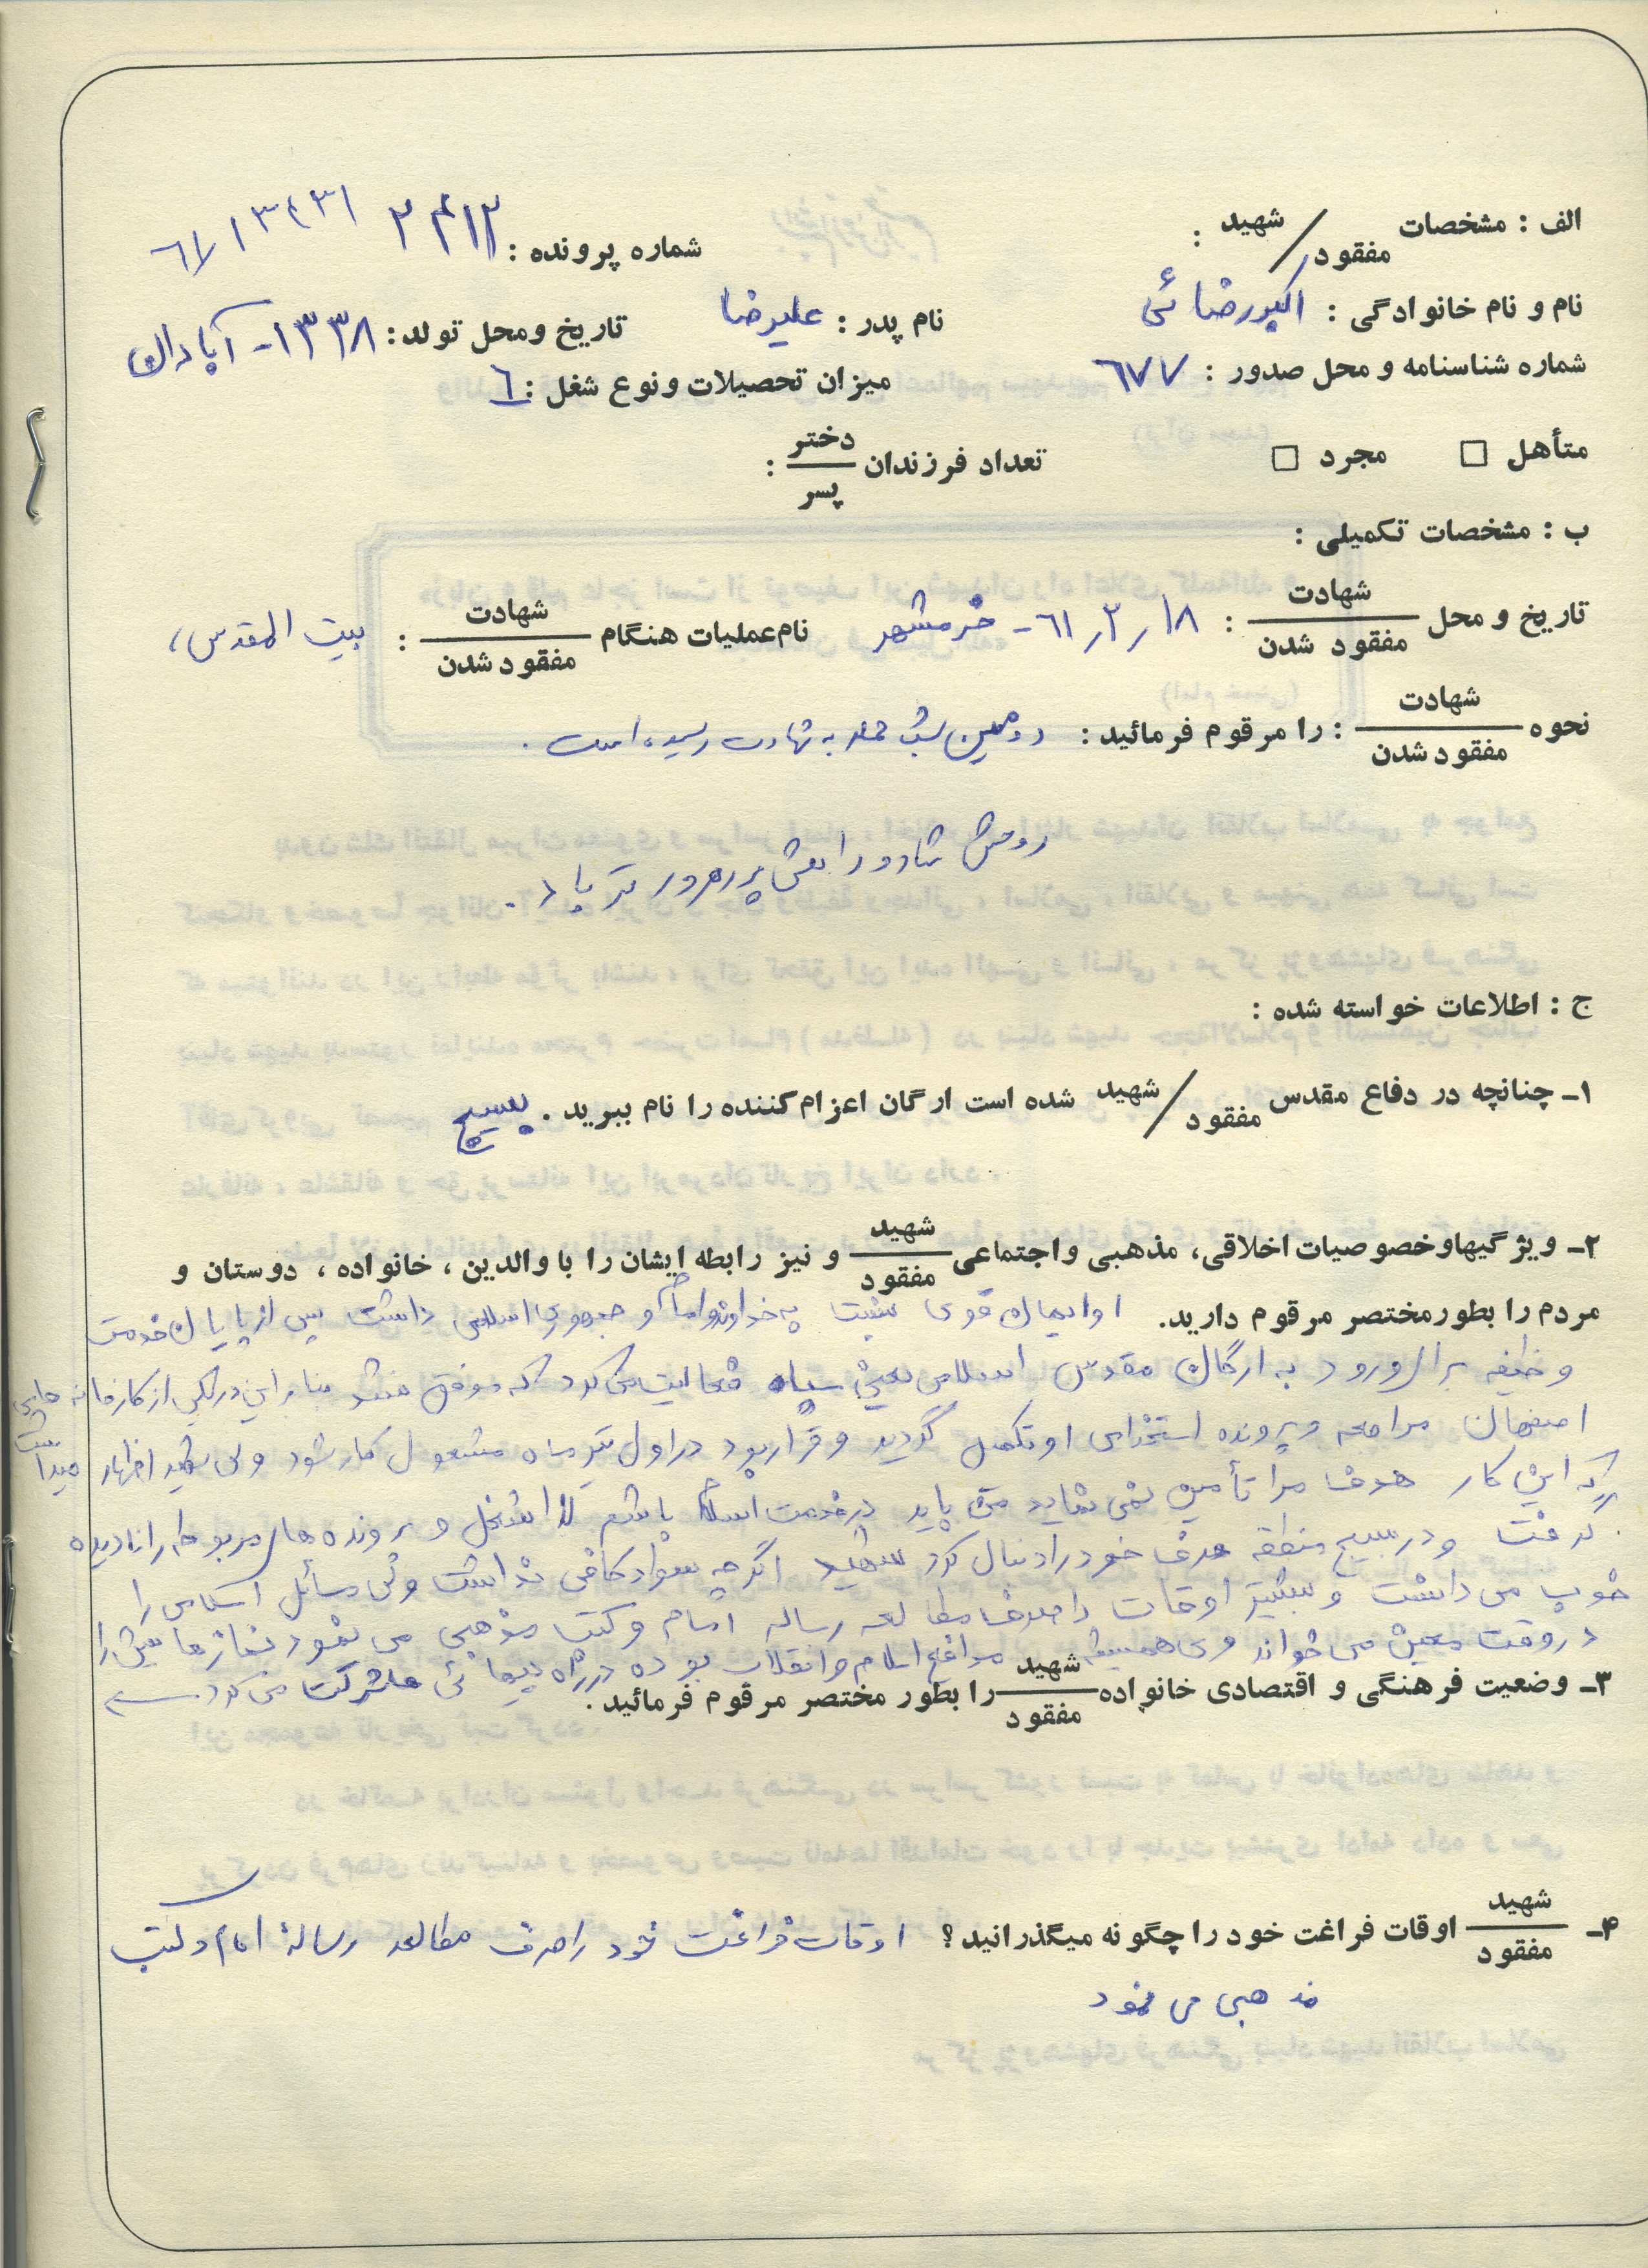 الف : مشخصات شهید / مفقود :
شماره پرونده : ۲۴۱۲ ۶۷/۱۳۴۳۱
نام و نام خانوادگی : اکبر رضائی
نام پدر : علیرضا
تاریخ ومحل تولد : ۱۳۳۸ - آبادان
شماره شناسنامه و محل صدور : ۶۷۷
میزان تحصیلات و نوع شغل : ۶
متأهل □ مجرد □
تعداد فرزندان دختر / پسر :
ب : مشخصات تکمیلی :
تاریخ و محل شهادت / مفقود شدن : ۶۱٫۲٫۱۸ - خرمشهر
نام عملیات هنگام شهادت / مفقود شدن : بیت المقدس
نحوه شهادت / مفقود شدن : را مرقوم فرمائید : دومین شب حمله به شهادت رسیده است .
روحش شاد و راهش پر رهرو تر باد .
ج : اطلاعات خواسته شده :
۱ـ چنانچه در دفاع مقدس شهید / مفقود شده است ارگان اعزام کننده را نام ببرید . بسیج
۲ـ ویژگیها و خصوصیات اخلاقی، مذهبی و اجتماعی شهید / مفقود و نیز رابطه ایشان را با والدین ، خانواده ، دوستان و
مردم را بطور مختصر مرقوم دارید. او ایمان قوی نسبت به خداوند و امام و جمهوری اسلامی داشت پس از پایان خدمت
وظیفه برای ورود به ارگان مقدس اسلامی یعنی سپاه فعالیت می کرد که موفق نشد بنابراین در یکی از کارخانه های
اصفهان مراجعه و پرونده استخدامی او تکمیل گردید و قرار بود در اول تیر ماه مشغول کار شود ولی شهید اظهار میداشت
که این کار هدف مرا تأمین نمی نماید من باید در خدمت اسلام باشم لذا شغل و پرونده های مربوطه را نادیده
گرفت و در بسیج منطقه هدف خود را دنبال کرد شهید اگرچه سواد کافی نداشت ولی مسائل اسلامی را
خوب می دانست و بیشتر اوقات را صرف مطالعه رساله امام و کتب مذهبی می نمود نمازهایش را
در وقت معین می خواند وی همیشه مدافع اسلام و انقلاب بوده در راه پیمائی ها شرکت می کرد
۳ـ وضعیت فرهنگی و اقتصادی خانواده شهید / مفقود را بطور مختصر مرقوم فرمائید .
۴ـ شهید / مفقود اوقات فراغت خود را چگونه میگذرانید ؟ اوقات فراغت خود را صرف مطالعه رسالهٔ امام و کتب
مذهبی می نمود